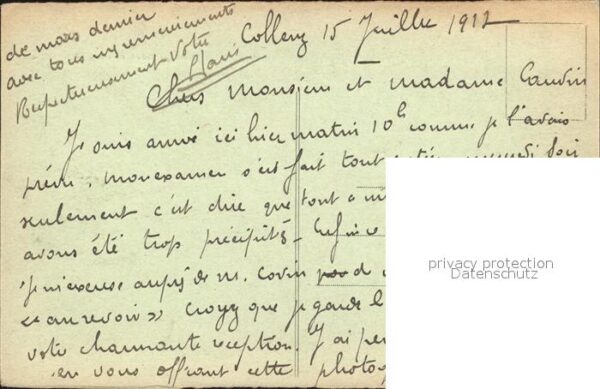 de mars dernier
avec tous mes remerciements
Respectueusement Votre
15 Juillet 1912
Chers Monsieur et madame
Je suis arrivé ici hier matin 10h comme je l'avais
prévu, mon examen s'est fait tout
seulement c'est dire que tout a
avons été trop précipités. Enfin
Je m'excuse auprès de m. Covin
"au revoir" croyez que je garde
votre charmante réception. J'ai
en vous offrant cette
privacy protection
Datenschutz